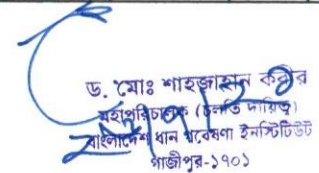 ড. মোঃ শাহজাহান কবীর
মহাপরিচালক (চলতি দায়িত্ব)
বাংলাদেশ ধান গবেষণা ইনস্টিটিউট
গাজীপুর-১৭০১